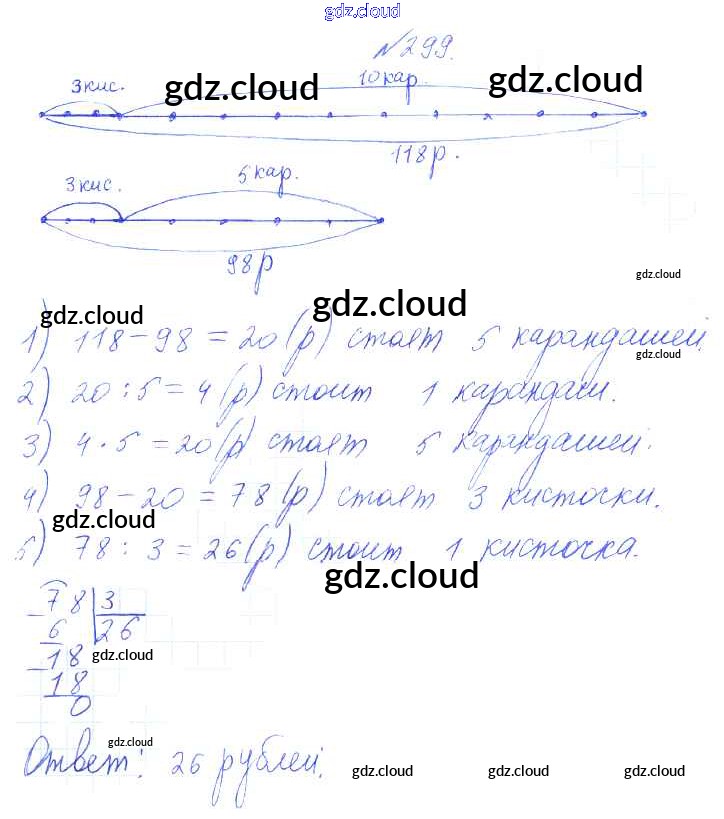 gdz.cloud
№299.
3кис. gdz.cloud 10кар. gdz.cloud
118р.
3кис. 5кар.
98р
gdz.cloud
gdz.cloud gdz.cloud
1) 118-98=20(р) стоят 5 карандашей.
gdz.cloud
2) 20:5=4(р) стоит 1 карандаш.
3) 4·5=20(р) стоят 5 карандашей.
4) 98-20=78(р) стоят 3 кисточки.
gdz.cloud
5) 78:3=26(р) стоит 1 кисточка.
gdz.cloud
-78 3
6 26
-18 gdz.cloud
18
0
gdz.cloud
Ответ: 26 рублей.
gdz.cloud gdz.cloud gdz.cloud